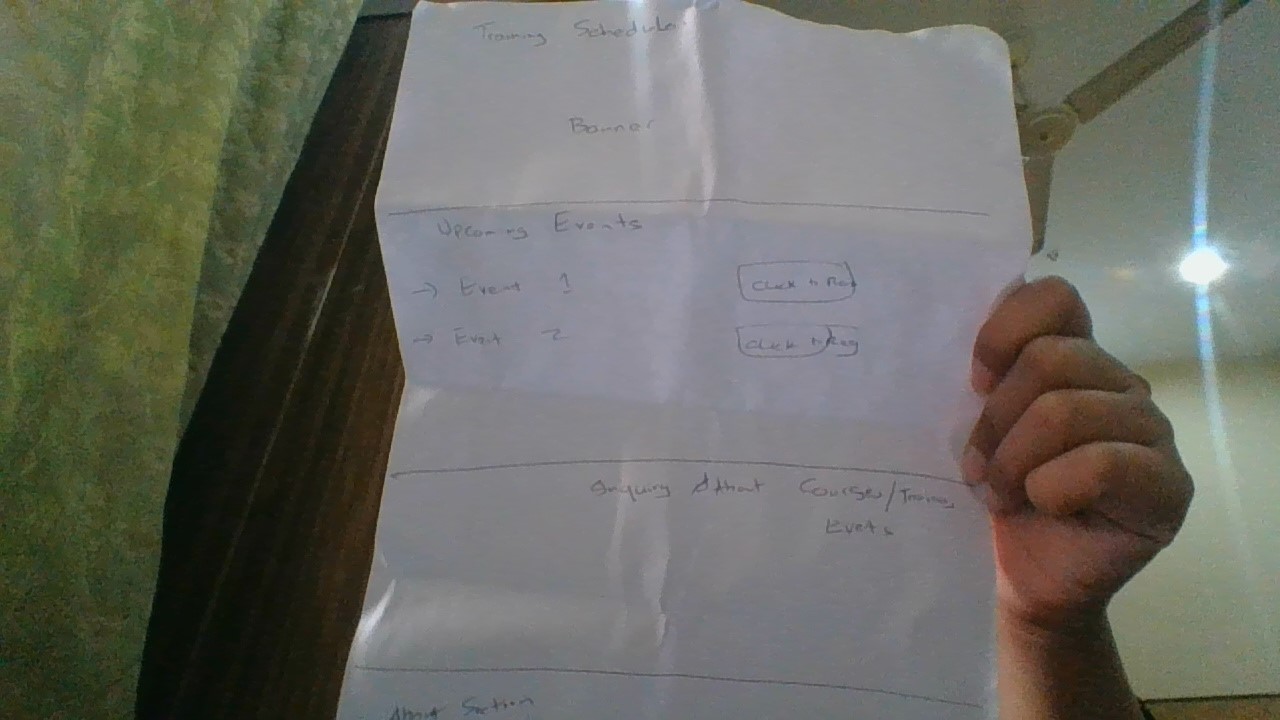 Training Schedule
Banner
Upcoming Events
→ Event 1
Click to Reg
→ Event 2
Click to Reg
Enquiry About Courses/Training
Events
About Section